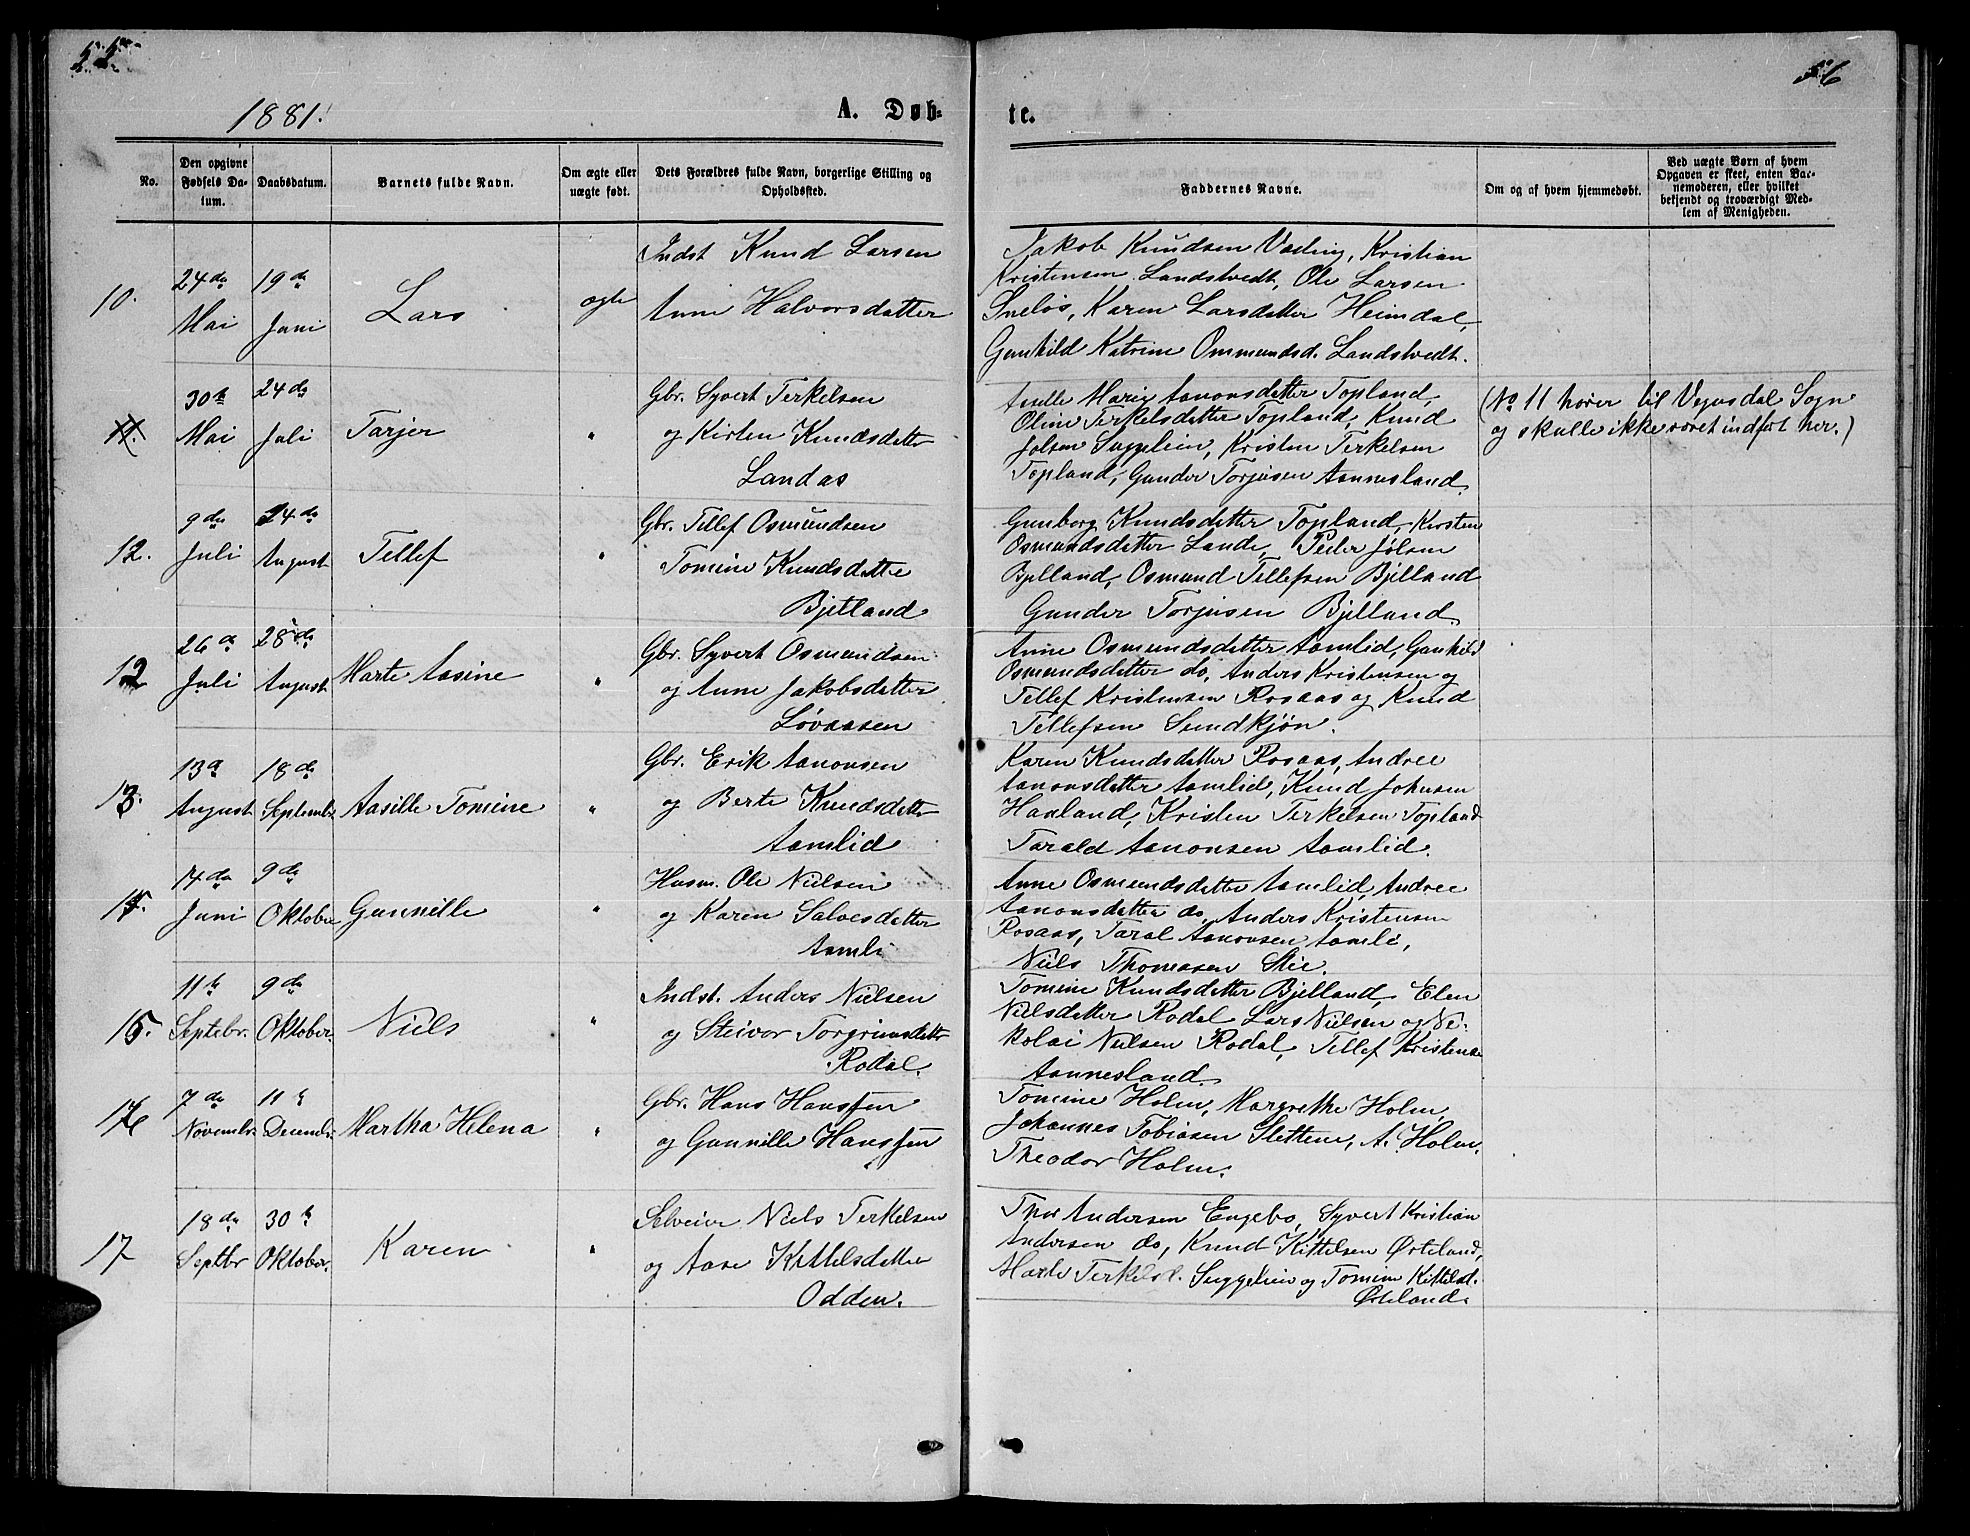 55
56
1881.
A. Døb-
te.
No.
Den opgivne Fødsels Da-
tum.
Daabsdatum.
Barnets fulde Navn.
Om ægte eller
uægte født.
Dets Forældres fulde Navn, borgerlige Stilling og
Opholdssted.
Faddernes Navne.
Om og af hvem hjemmedøbt.
Ved uægte Børn af hvem
Opgaven er skeet, enten Bar-
nemoderen, eller hvilket
bekjendt og troværdigt Med-
lem af Menigheden.
10.
24de
Mai
19de
Juni
Lars
ægte
Indst Knud Larsen
Anne Halvorsdatter
Jakob Knudsen Væding, Kristian
Kristensen Landstvedt, Ole Larsen
Sneløs, Karen Larsdatter Heimdal,
Gunhild Katrine Ommundsd. Landstvedt.
11.
30te
Mai
24de
Juli
Tarjer
"
Gbr. Syvert Terkelsen
og Kirsten Knudsdatter
Landaas
Aselle Marie Aanonsdatter Topland,
Oline Terkelsdatter Topland, Knud
Jolsen Suggelien, Kristen Terkelsen
Topland, Gunder Torjusen Aannesland.
(No 11 hører til Vegusdal Sogn
og skulle ikke været indført her.)
12.
9de
Juli
24de
August
Tellef
"
Gbr. Tellef Osmundsen
Tomine Knudsdatter
Bjelland
Gunborg Knudsdatter Topland, Kirsten
Osmundsdatter Lande, Peder Jølsen
Bjelland, Osmund Tellefsen Bjelland
Gunder Torjusen Bjelland
12
26de
Juli
28de
August
Marte Aasine
"
Gbr. Syvert Osmundsen
og Anne Jakobsdatter
Løvaasen
Anne Osmundsdatter Aamlid, Gunhild
Osmundsdatter do, Anders Kristensen og
Tellef Kristensen Rosaas og Knud
Tellefsen Sundkjøn.
13.
13de
August
18de
Septembr.
Aasille Tomine
"
Gbr. Erik Aanonsen
og Berte Knudsdatter
Aamlid
Karen Knudsdatter Rosaas, Andree
Aanonsdatter Aamlid, Knud Johnsen
Haaland, Kristen Terkelsen Topland
Tarald Aanonsen Aamlid.
14de
Juni
9de
Oktober
Gunnille
"
Husm. Ole Nielsen
og Karen Salvesdatter
Aamli
Anne Osmundsdatter Aamlid, Andree
Aanonsdatter do, Anders Kristensen
Rosaas, Taral Aanonsen Aamli,
Niels Thomasen Stie.
15.
11te
Septebr.
9de
Oktober.
Niels
"
Indst. Anders Nielsen
og Steivor Torgrimsdatter
Rodal.
Tomine Knudsdatter Bjelland, Elen
Nielsdatter Rodal Lars Nielsen og Ni-
kolai Nielsen Rodal, Tellef Kristense
Aannesland
16
7de
Novembr.
11te
Decembr.
Martha Helena
"
Gbr. Hans Hanssen
og Gunnille Hanssen
Tomine Holm, Margrethe Holm,
Johannes Tobiasen Slettene, A. Holm.
Theodor Holm.
17
18de
Septbr
30te
Oktober.
Karen
"
Selveier Niels Terkelsen
og Aase Kittelsdatter
Odden.
Thor Andersen Engebo, Syvert Kristian
Andersen do, Knud Kittelsen Østeland,
Marte Terkelsd. Suggelien og Tomine Kittelsd.
Østeland.